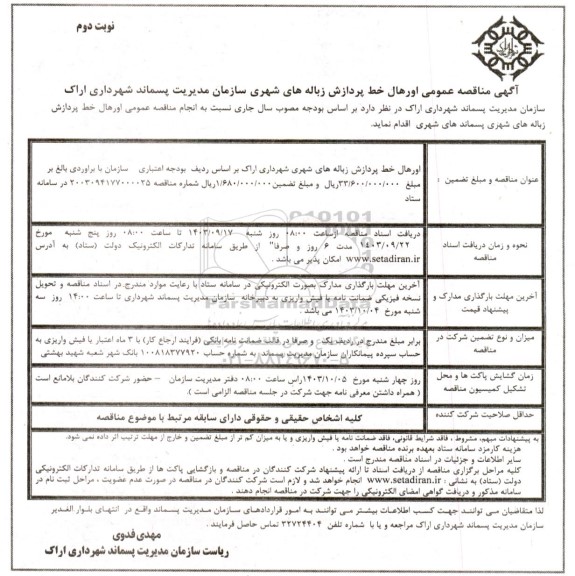 نوبت دوم
آگهی مناقصه عمومی اورهال خط پردازش زباله های شهری سازمان مدیریت پسماند شهرداری اراک
سازمان مدیریت پسماند شهرداری اراک در نظر دارد بر اساس بودجه مصوب سال جاری نسبت به انجام مناقصه عمومی اورهال خط پردازش
زباله های شهری پسماند های شهری اقدام نماید.
عنوان مناقصه و مبلغ تضمین :
اورهال خط پردازش زباله های شهری شهرداری اراک بر اساس ردیف بودجه اعتباری سازمان با براوردی بالغ بر
مبلغ ۳۳/۶۰۰/۰۰۰/۰۰۰ریال و مبلغ تضمین۱/۶۸۰/۰۰۰/۰۰۰ریال شماره مناقصه ۲۰۰۳۰۹۴۱۷۷۰۰۰۰۲۵ در سامانه
ستاد
نحوه و زمان دریافت اسناد
مناقصه
دریافت اسناد مناقصه ازساعت ۰۸:۰۰ روز شنبه ۱۴۰۳/۰۹/۱۷ تا ساعت ۰۸:۰۰ روز پنج شنبه مورخ
۱۴۰۳/۰۹/۲۲ مدت ۶ روز و صرفا" از طریق سامانه تدارکات الکترونیک دولت (ستاد) به آدرس
www.setadiran.ir امکان پذیر می باشد .
آخرین مهلت بارگذاری مدارک و
پیشنهاد قیمت
آخرین مهلت بارگذاری مدارک بصورت الکترونیکی در سامانه ستاد با رعایت موارد مندرج در اسناد مناقصه و تحویل
نسخه فیزیکی ضمانت نامه یا فیش واریزی به دبیرخانه سازمان مدیریت پسماند شهرداری تا ساعت ۱۴:۰۰ روز سه
شنبه مورخ ۱۴۰۳/۱۰/۰۴ می باشد .
میزان و نوع تضمین شرکت در
مناقصه
برابر مبلغ مندرج در ردیف یک و صرفا در قالب ضمانت نامه بانکی (فرایند ارجاع کار) با ۳ ماه اعتبار یا فیش واریزی به
حساب سپرده پیمانکاران سازمان مدیریت پسماند به شماره حساب ۱۰۰۸۱۸۳۷۷۹۲۰ بانک شهر شعبه شهید بهشتی
زمان گشایش پاکت ها و محل
تشکیل کمیسیون مناقصه
روز چهار شنبه مورخ ۱۴۰۳/۱۰/۰۵راس ساعت ۰۸:۰۰ دفتر مدیریت سازمان – حضور شرکت کنندگان بلامانع است
( همراه داشتن معرفی نامه جهت شرکت در جلسه مناقصه الزامی است )
حداقل صلاحیت شرکت کننده
کلیه اشخاص حقیقی و حقوقی دارای سابقه مرتبط با موضوع مناقصه
به پیشنهادات مبهم, مشروط , فاقد شرایط قانونی, فاقد ضمانت نامه یا فیش واریزی و یا به میزان کم تر از مبلغ تضمین و خارج از مهلت ترتیب اثر داده نمی شود.
هزینه کارمزد سامانه ستاد بعهده برنده مناقصه خواهد بود .
سایر اطلاعات و جزئیات در اسناد مناقصه مندرج است .
کلیه مراحل برگزاری مناقصه از دریافت اسناد تا ارائه پیشنهاد شرکت کنندگان در مناقصه و بازگشایی پاکت ها از طریق سامانه تدارکات الکترونیکی
دولت (ستاد) به نشانی : www.setadiran.ir انجام خواهد شد و لازم است شرکت کنندگان در مناقصه در صورت عدم عضویت , مراحل ثبت نام در
سامانه مذکور و دریافت گواهی امضای الکترونیکی را جهت شرکت در مناقصه انجام دهند .
لذا متقاضیان می توانند جهت کسب اطلاعات بیشتر می توانند به امور قراردادهای سازمان مدیریت پسماند واقع در انتهای بلوار الغدیر
سازمان مدیریت پسماند شهرداری اراک مراجعه و یا با شماره تلفن ۳۲۷۲۴۴۰۴ تماس حاصل فرمایند .
مهدی فدوی
ریاست سازمان مدیریت پسماند شهرداری اراک
ParsNamadData